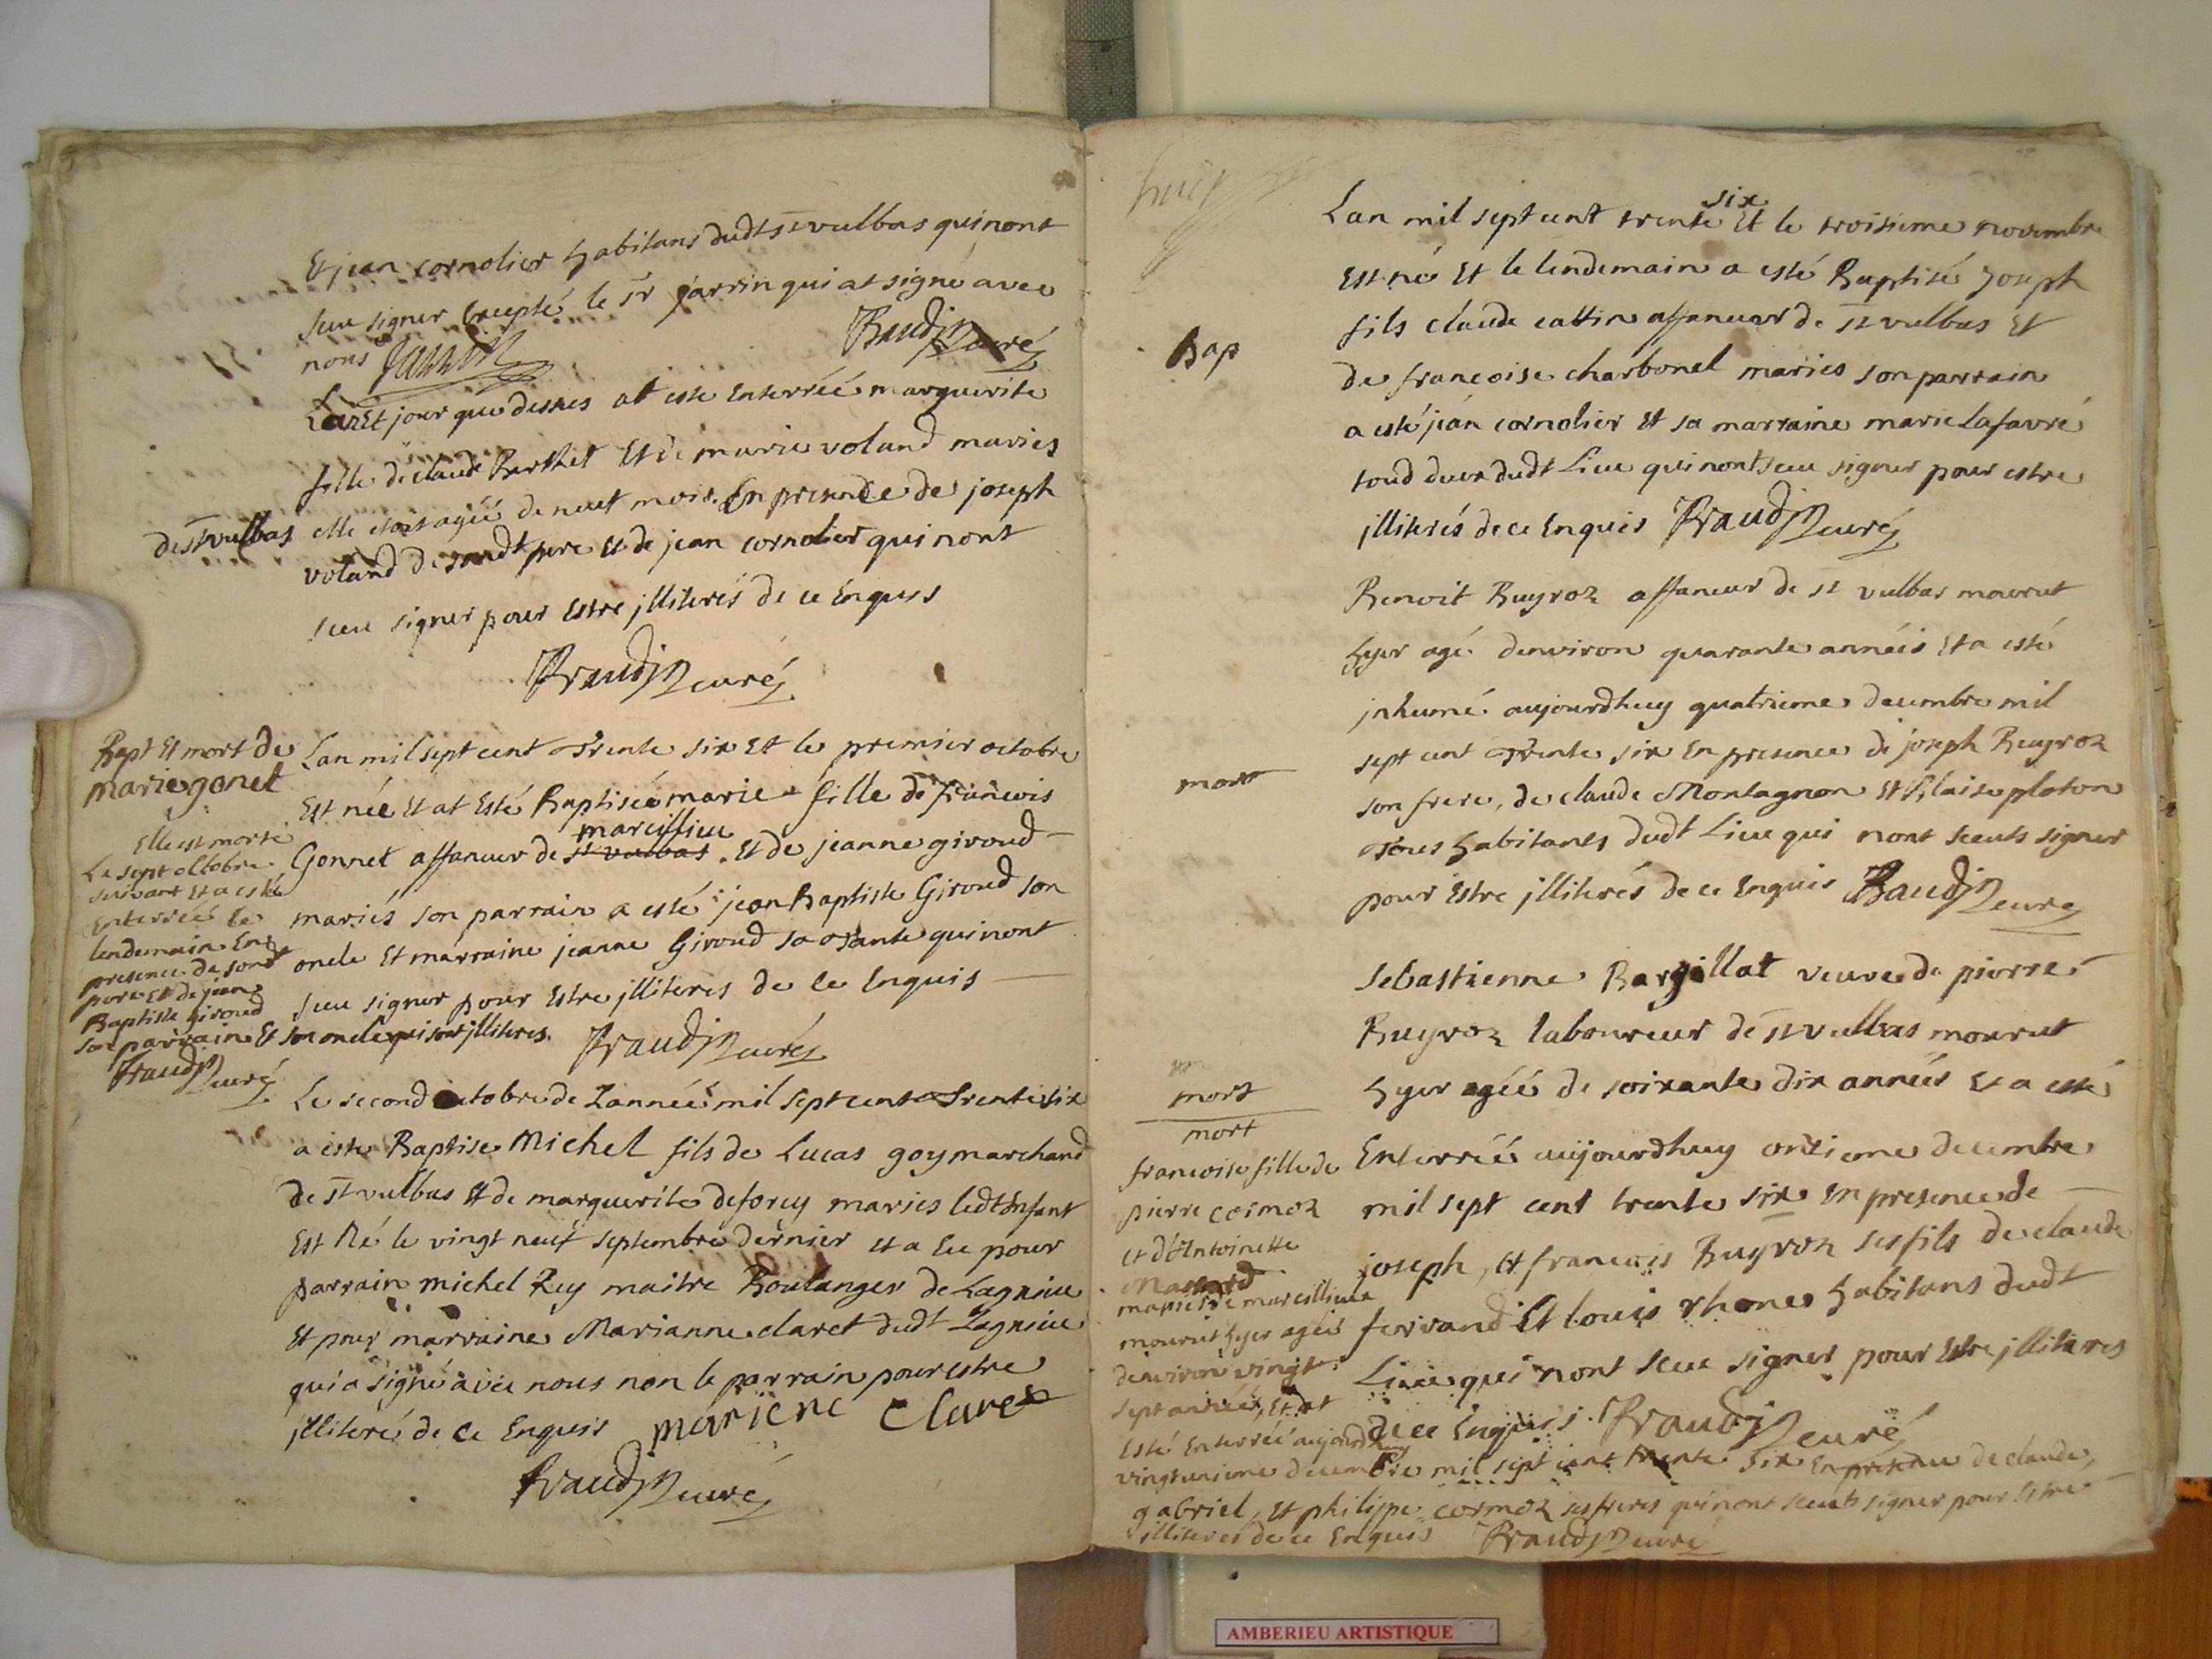 Et jean cornolier habitans dudt st vulbas qui nont
sceu signer Excepté le sr jarrin qui at signé avec
nous Jarrin Baudin curé
Lan Et jour que dessus at este Enterréé marguerite
fille de claude Berthet Et de marie voland mariés
de st vulbas elle etoit agéé de neuf mois. En presence de joseph
voland de sondt pere Et de jean cornolier qui nont
sceu signer pour Estre jlliterés de ce Enquis
Baudin curé
Bapt Et mort de
marie gonet
Elle est morte
Le sept octobre
suivant Et a esté
Enterréé le
lendemain En
presence de sondt
pere Et de jean
Baptiste giroud
son parrain Et son oncle qui sont jlliteres.
Baudin curé
Lan mil sept cent Trente six Et le premier octobre
Est néé Et at Esté Baptiséé marie fille de francois
marcillieu
Gonnet affaneur de st vulbas. Et de jeanne giroud
mariés son parrain a esté jean Baptiste Giroud son
oncle Et marraine jeanne Giroud sa Tante qui nont
sceu signer pour Estre jlliteres de ce Enquis
Baudin curé
Le second octobre de Lannéé mil sept cent Trente six
a este Baptise Michel fils de Lucas goy marchand
de st vulbas Et de marguerite deforey mariés ledt Enfant
Est Né le vingt neuf septembre dernier et a Eu pour
parrain michel Rey maitre Boulanger de Lagnieu
Et pour marraine Marianne claret dudt Lagnieu
qui a signé avec nous non le parrain pour estre
jlliteré de ce Enquis mariene Claret
Baudin curé
huit
Bap
six
Lan mil sept cent trente Et le troisieme novembre
Est né Et le lendemain a esté Baptisé Joseph
fils claude cattin affaneur de st vulbas Et
de francoise charbonel mariés son parrain
a esté jean cornolier Et sa marraine marie Lafavre
toud deux dudt Lieu qui nont sceu signer pour estre
jlliterés de ce Enquis Baudin curé
mort
Benoit Buyroz affaneur de st vulbas mourut
hyer agé denviron quarante annéés Et a esté
jnhumé aujourdhuy quatrieme decembre mil
sept cent Trente six En presence de joseph Buyroz
son frere, de claude Montagnon Et Blaise platon
Tous habitants dudt Lieu qui nont sceuts signer
pour Estre jlliterés de ce Enquis Baudin curé
mort
Sebastienne Bargillat veuve de pierre
Buyroz laboureur de st vulbas mourut
hyer agéé de soixante dix annéés Et a esté
Enterréé aujourdhuy onzieme decembre
mil sept cent trente six en presence de
joseph, Et francois Buyroz ses fils de claude
ferrand Et louis rhone habitans dudt
Lieu qui nont sceu signer pour Estre jlliteres
de ce Enquis. Baudin curé
mort
francoise fille de
pierre cormoz
et d'Antoinette
mariés de marcillieu
mourut hyer agéé
denviron vingt
sept annéés, Et at
Esté Enterréé aujourdhuy
vingtunieme decembre mil sept cent trente six En presence de claude,
gabriel, Et philippe cormoz ses freres qui nont sceuts signer pour Estre
jlliterés de ce Enquis Baudin curé
AMBERIEU ARTISTIQUE